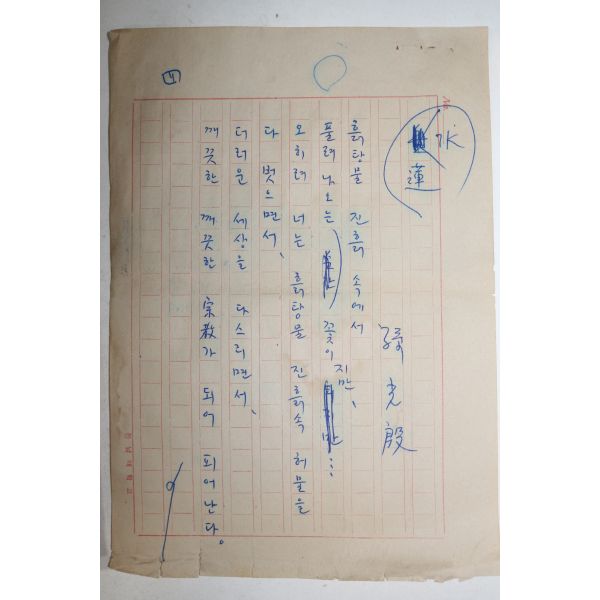 No.
水蓮
孫光殷
흙탕물 진흙 속에서
풀려 나오는 꽃이지만、…
오히려 너는 흙탕물 진흙속 허물을
다 벗으면서、
더러운 세상을 다스리면서、
깨끗한 깨끗한 宗教가 되어 피어난다。